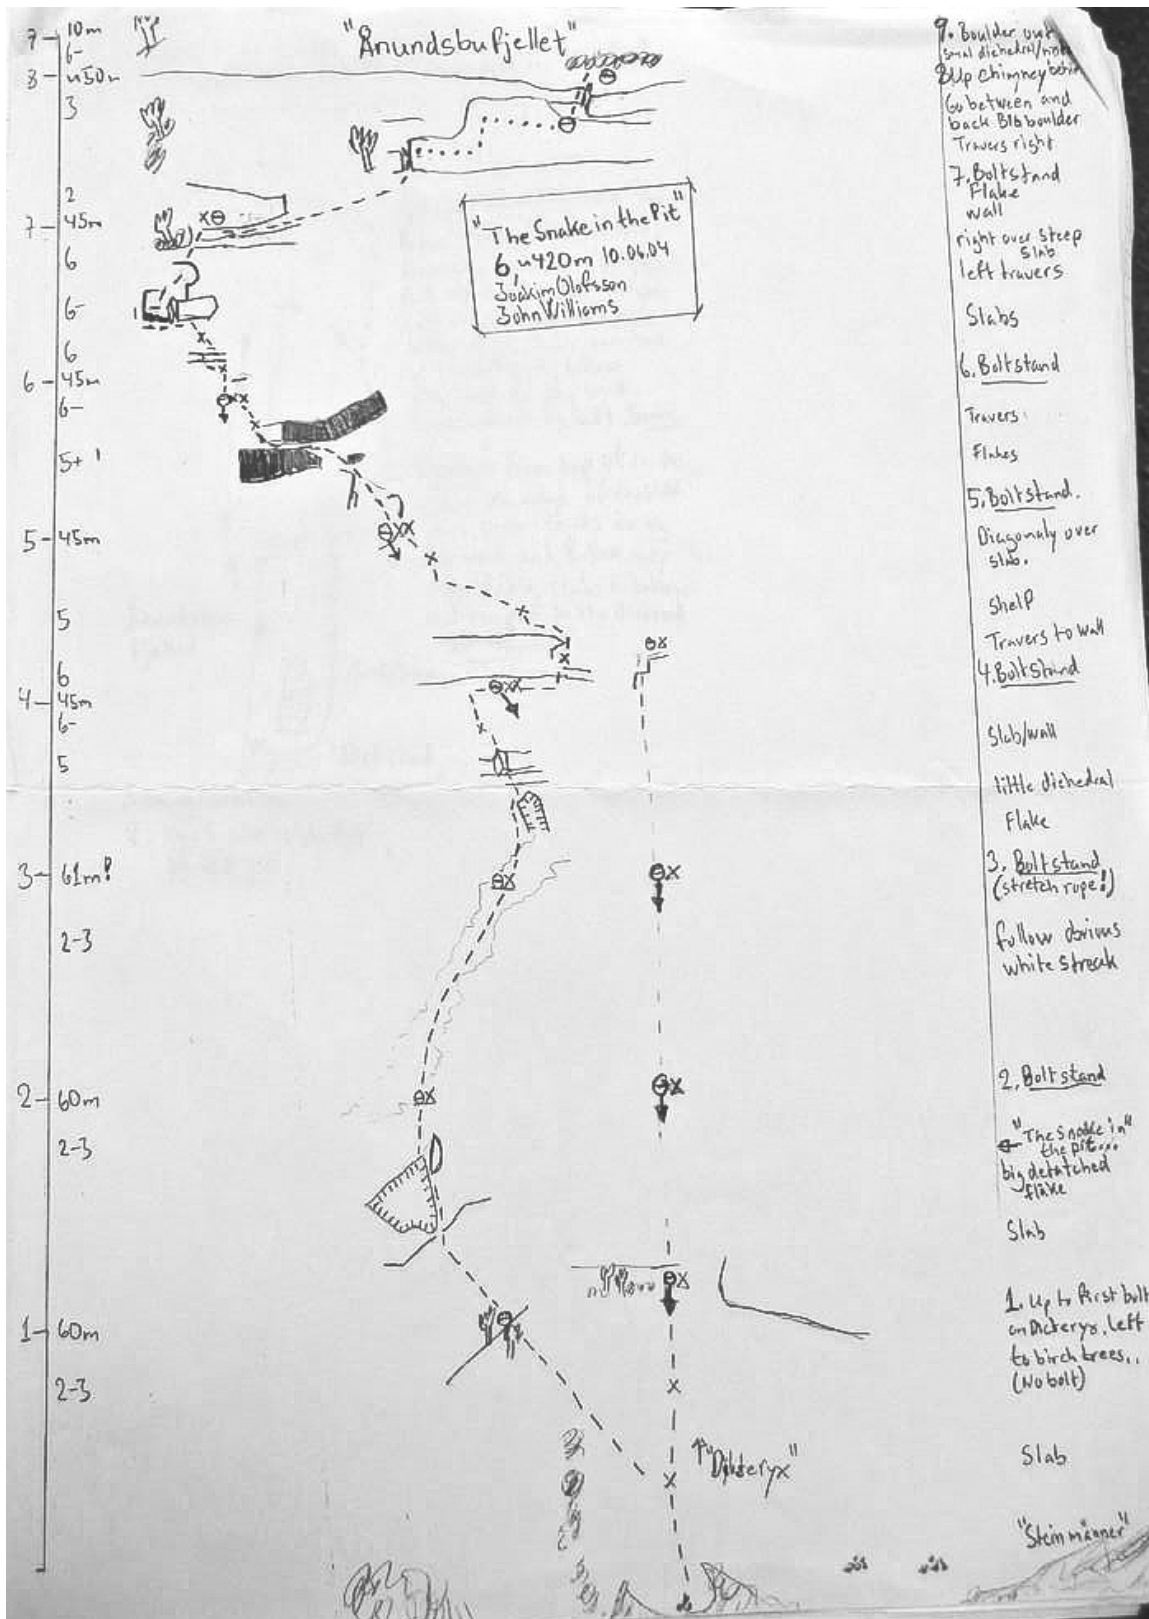 "Ånundsbufjellet"
7 10m
6-
8 ~50m
3
2
7 45m
6
6-
6
6 45m
6-
5+ !
5 45m
5
6
4 45m
6-
5
3 61m!
2-3
2 60m
2-3
1 60m
2-3
"The Snake in the Pit"
6, ~420m 10.06.04
Joakim Olofsson
John Williams
↑"Dikteryx"
9. Boulder
small dichedral
8 Up chimney behind
Go between and
back Big boulder
Travers right
7. Boltstand
Flake
wall
right over steep
slab
left travers
Slabs
6. Boltstand
Travers
Flakes
5. Boltstand.
Diagonaly over
slab.
Shelf
Travers to wall
4. Boltstand
Slab/wall
little dichedral
Flake
3. Boltstand
(stretch rope!)
follow obvious
white streak
2. Boltstand
"The Snake in"
the pit...
big detatched
flake
Slab
1. Up to first bolt
on Dicteryx, left
to birch trees..
(No bolt)
Slab
"Steinmänner"